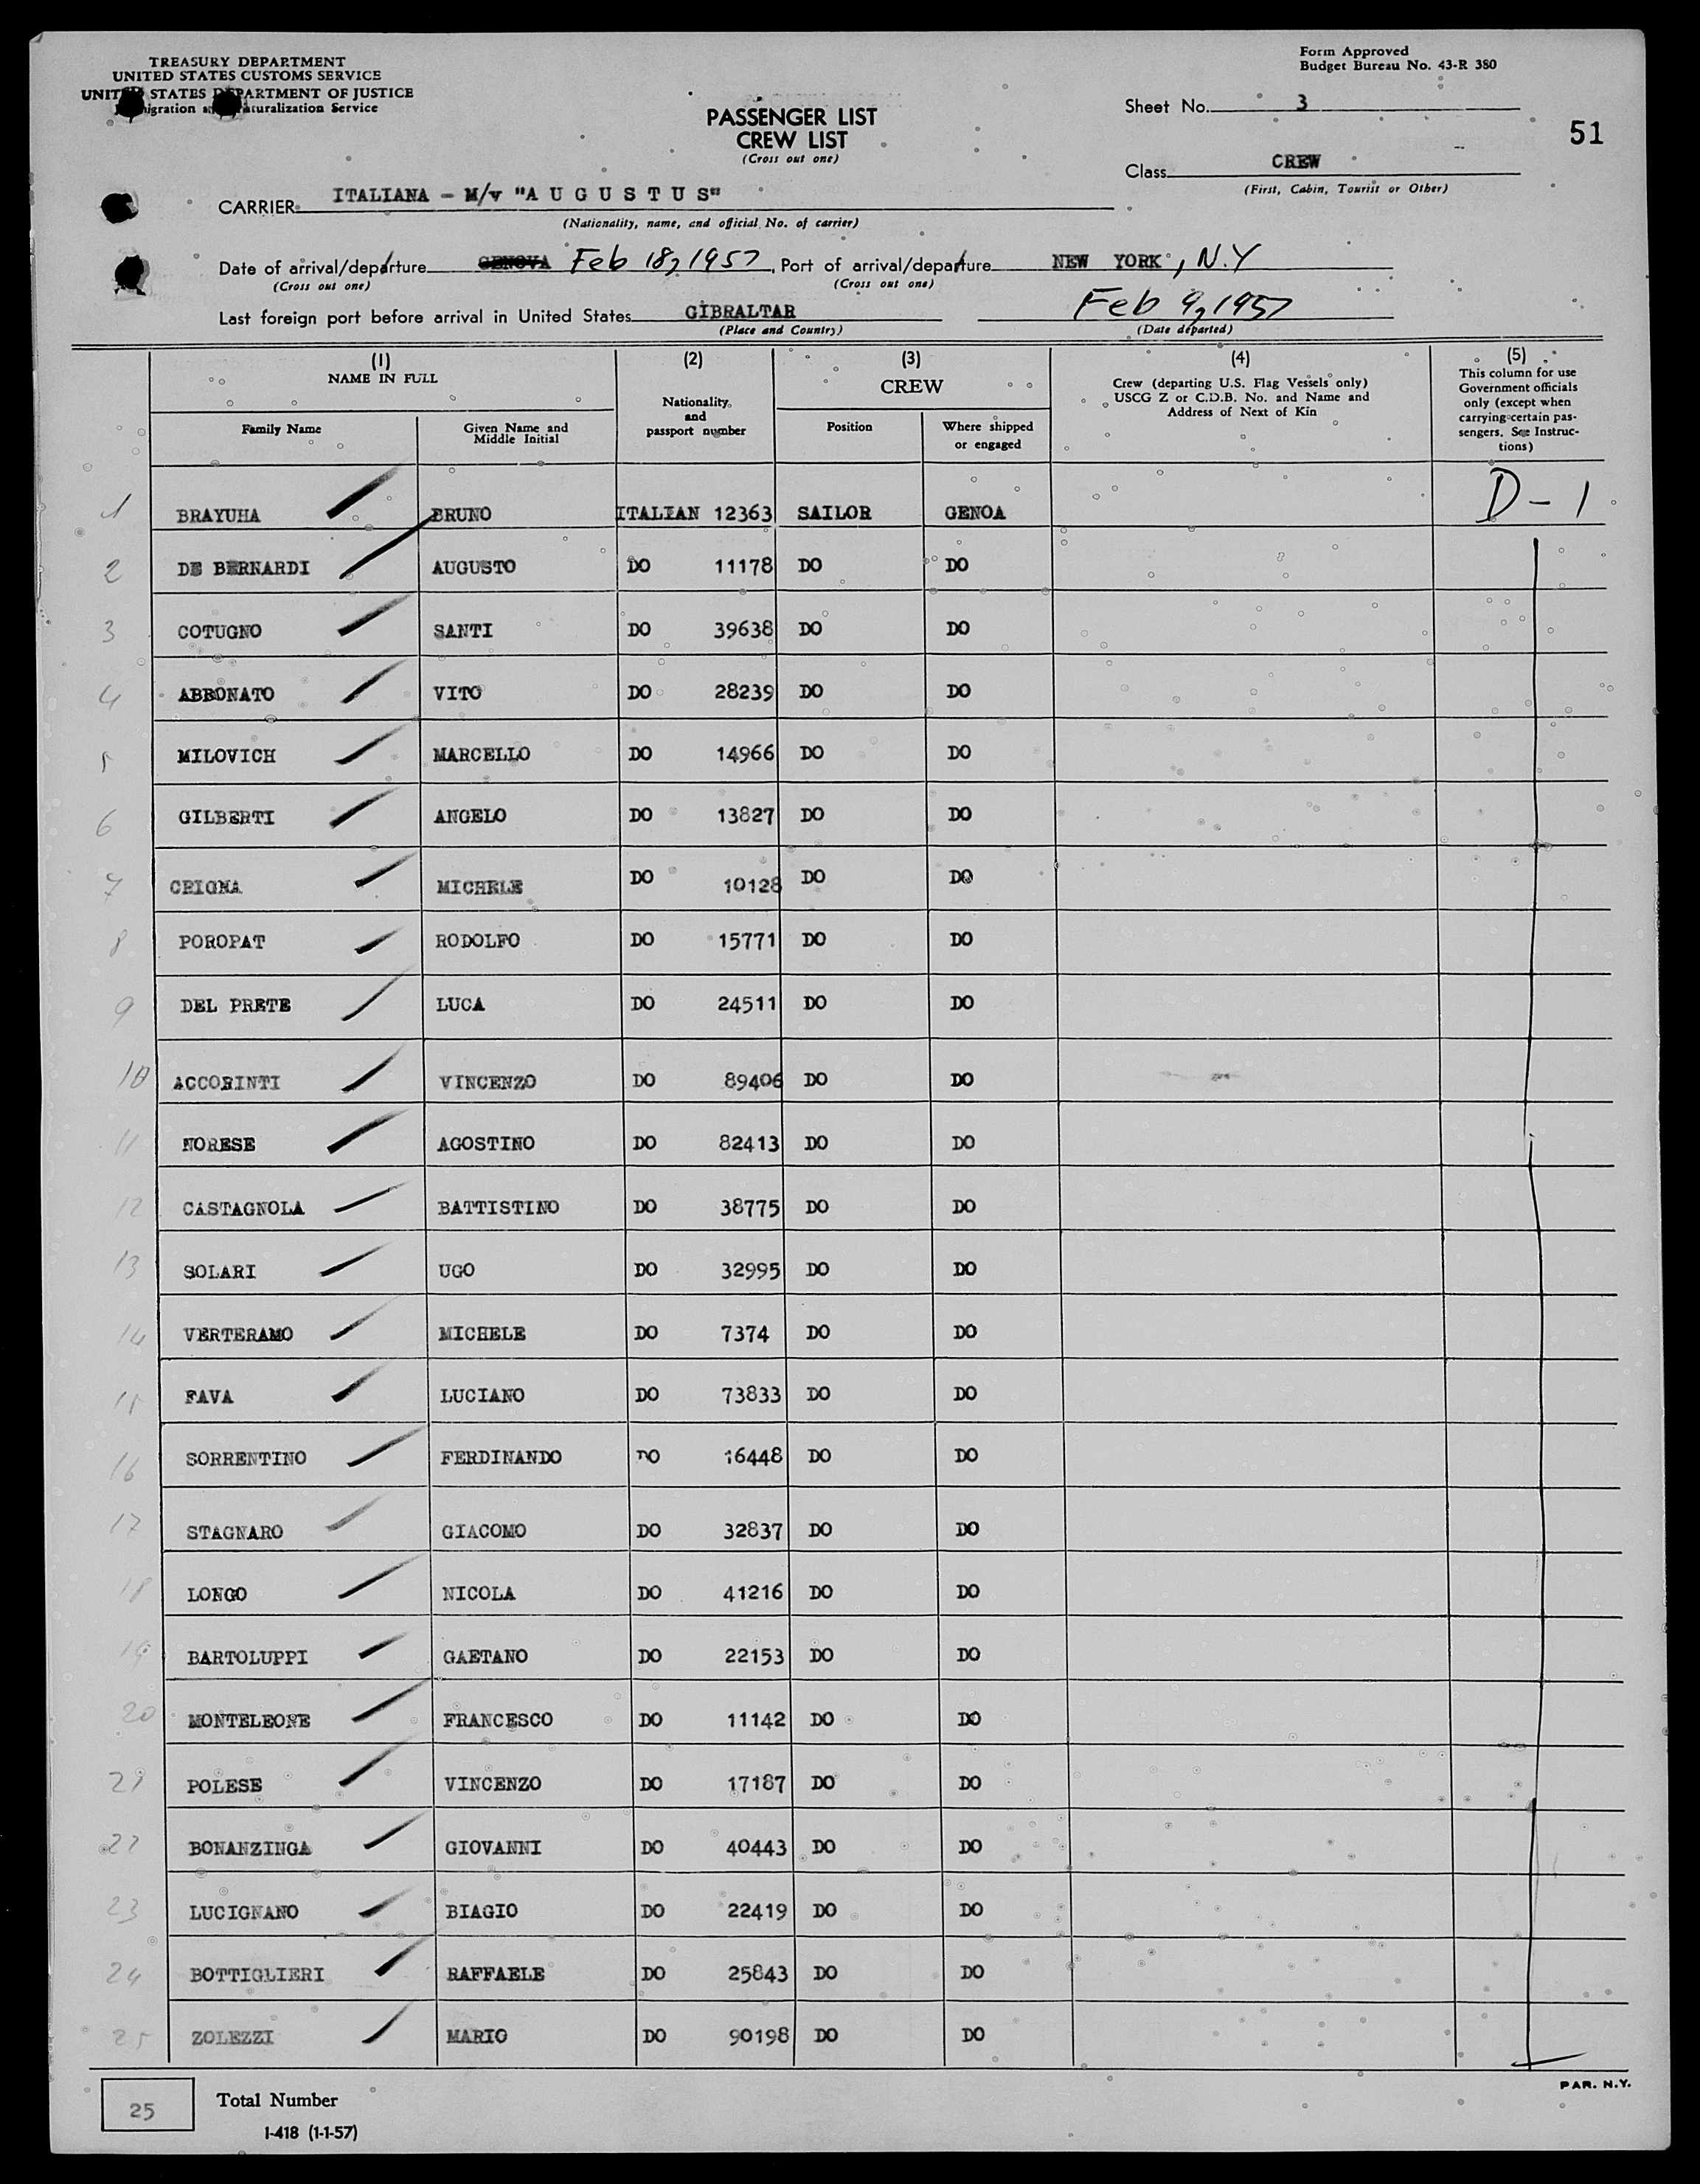 TREASURY DEPARTMENT
UNITED STATES CUSTOMS SERVICE
UNITED STATES DEPARTMENT OF JUSTICE
Immigration and Naturalization Service
Form Approved
Budget Bureau No. 43-R 380
PASSENGER LIST
CREW LIST
(Cross out one)
Sheet No. 3
51
Class CREW
(First, Cabin, Tourist or Other)
CARRIER ITALIANA - M/v "A U G U S T U S"
(Nationality, name, and official No. of carrier)
Date of arrival/departure GENOVA Feb 18, 1957, Port of arrival/departure NEW YORK, N.Y
(Cross out one) (Cross out one)
Last foreign port before arrival in United States GIBRALTAR Feb 9, 1957
(Place and Country) (Date departed)
(1) (2) (3) (4) (5)
NAME IN FULL
Family Name
Given Name and Middle Initial
Nationality, and passport number
CREW
Position
Where shipped or engaged
Crew (departing U.S. Flag Vessels only)
USCG Z or C.D.B. No. and Name and
Address of Next of Kin
This column for use
Government officials
only (except when
carrying certain pas-
sengers. See Instruc-
tions)
1 BRAYUHA BRUNO ITALIAN 12363 SAILOR GENOA D-1
2 DE BERNARDI AUGUSTO DO 11178 DO DO
3 COTUGNO SANTI DO 39638 DO DO
4 ABRONATO VITO DO 28239 DO DO
5 MILOVICH MARCELLO DO 14966 DO DO
6 GILBERTI ANGELO DO 13827 DO DO
7 CRIGNA MICHELE DO 10128 DO DO
8 POROPAT RODOLFO DO 15771 DO DO
9 DEL PRETE LUCA DO 24511 DO DO
10 ACCORINTI VINCENZO DO 89406 DO DO
11 NORESE AGOSTINO DO 82413 DO DO
12 CASTAGNOLA BATTISTINO DO 38775 DO DO
13 SOLARI UGO DO 32995 DO DO
14 VERTERAMO MICHELE DO 7374 DO DO
15 FAVA LUCIANO DO 73833 DO DO
16 SORRENTINO FERDINANDO DO 16448 DO DO
17 STAGNARO GIACOMO DO 32837 DO DO
18 LONGO NICOLA DO 41216 DO DO
19 BARTOLUPPI GAETANO DO 22153 DO DO
20 MONTELEONE FRANCESCO DO 11142 DO DO
21 POLESE VINCENZO DO 17187 DO DO
22 BONANZINGA GIOVANNI DO 40443 DO DO
23 LUCIGNANO BIAGIO DO 22419 DO DO
24 BOTTIGLIERI RAFFAELE DO 25843 DO DO
25 ZOLEZZI MARIO DO 90198 DO DO
25 Total Number
I-418 (1-1-57)
PAR. N.Y.